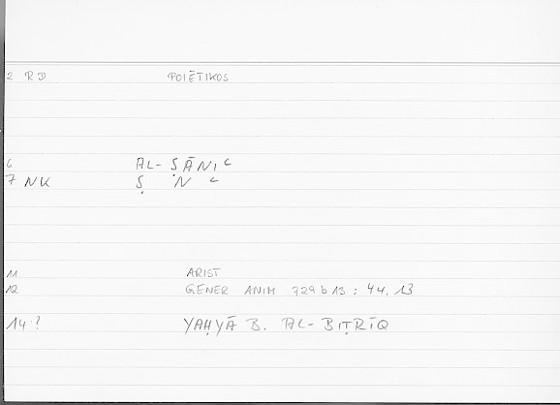 2 RD POIĒTIKOS
6 AL-ṢĀNIʿ
7 NK Ṣ N ʿ
11 ARIST
12 GENER ANIM 729 b 13 : 44, 13
14 ? YAḤYĀ B. AL-BIṬRĪQ